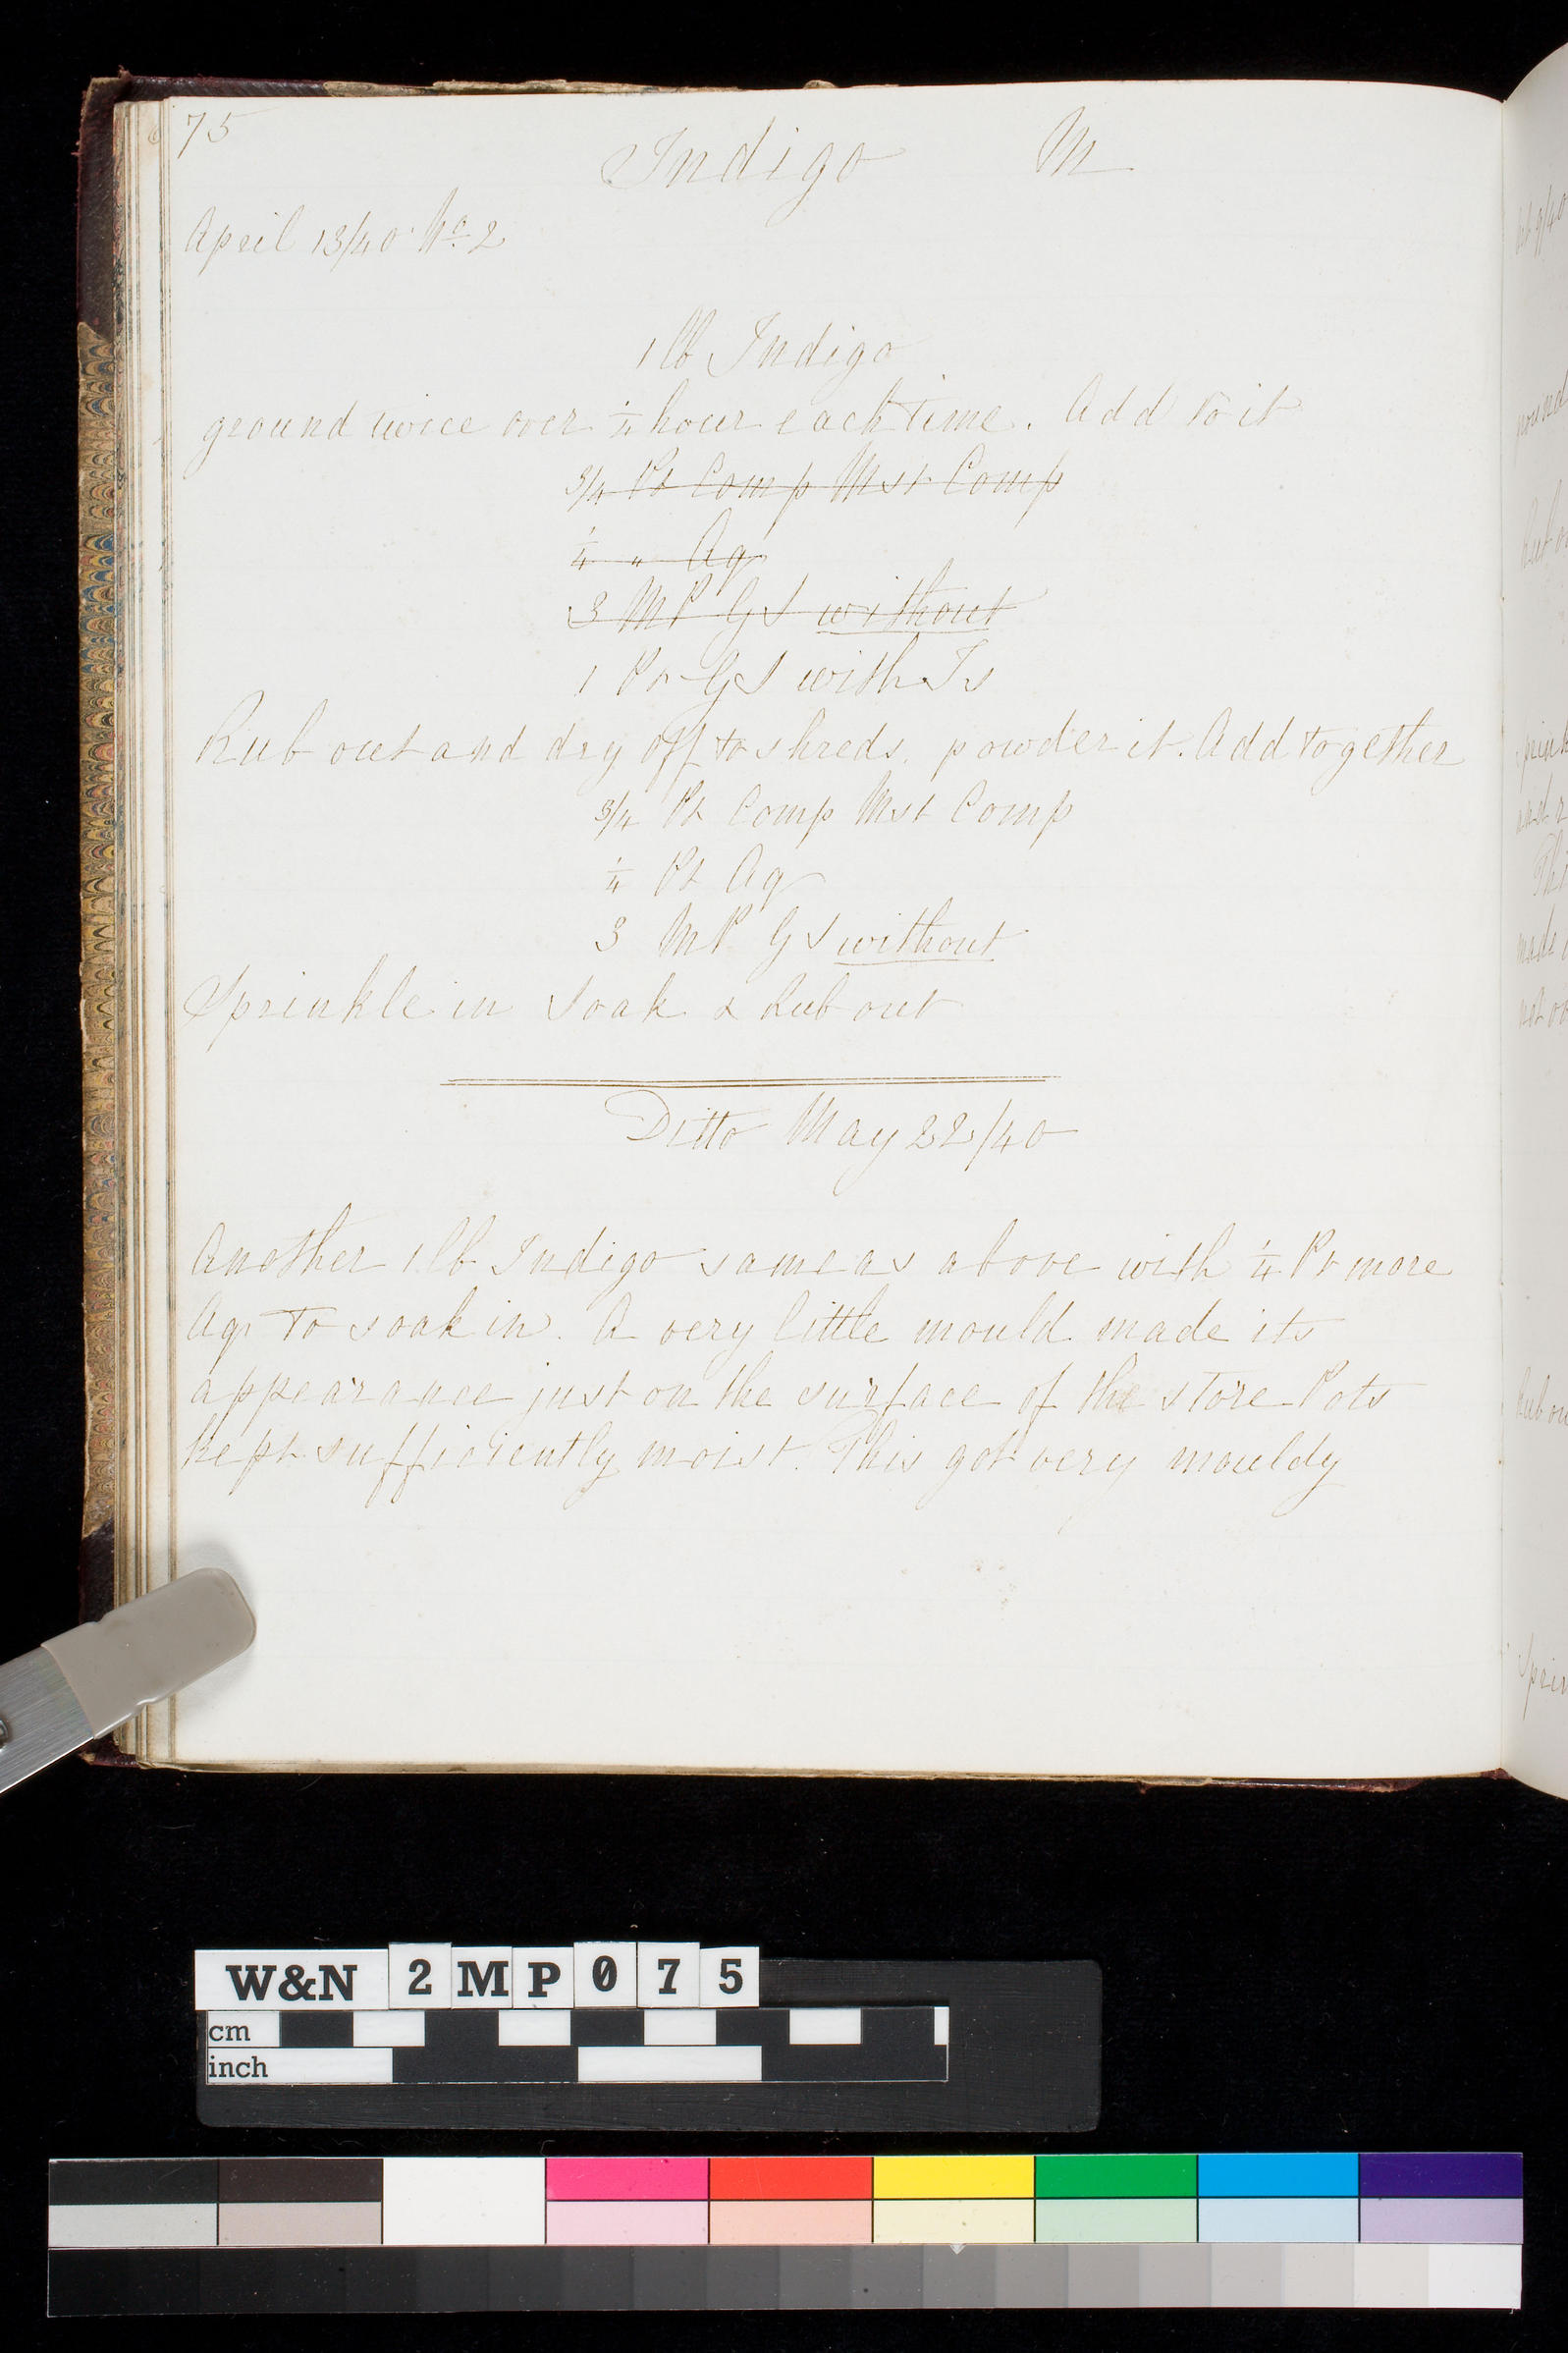 75
Indigo M
April 13/40 No 2
1 lb Indigo
ground twice over ¼ hour each time. Add to it
3/4 Pt Comp Mst Comp
¼ " Aq
3 MP GS without
1 Pt GS with Is
Rub out and dry off to shreds. powder it. Add together
3/4 Pt Comp Mst Comp
¼ Pt Aq
3 MP GS without
Sprinkle in Soak & Rub out
Ditto May 22/40
Another 1 lb Indigo same as above with ¼ Pt more
Aq to soak in. A very little mould made its
appearance just on the surface of the store Pots
kept sufficiently moist. This got very mouldy
W&N 2MP075
cm
inch